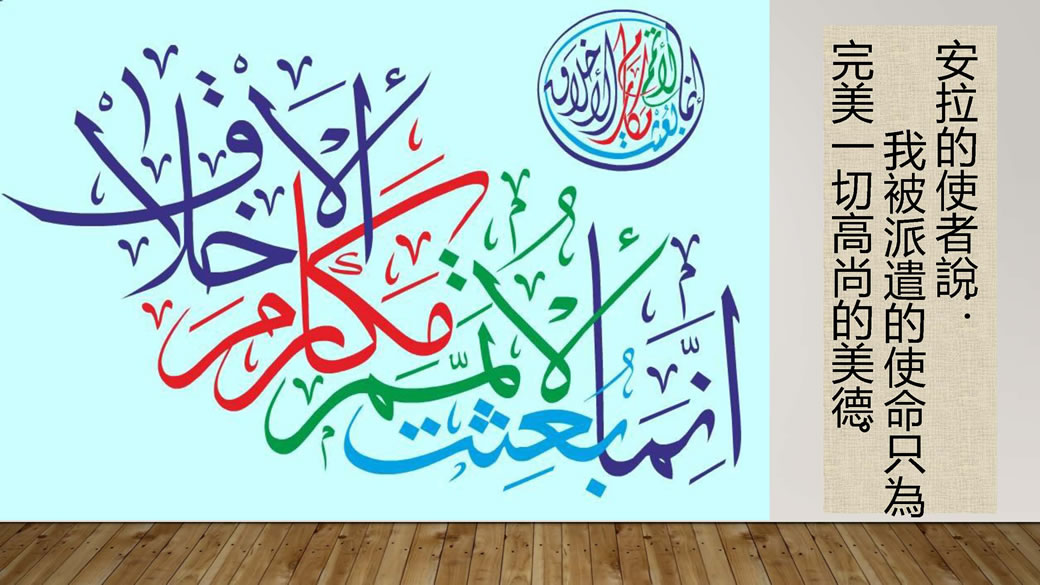 إنما بعثت لأتمم مكارم الأخلاق
إنما بعثت لأتمم مكارم الأخلاق
安拉的使者說:
我被派遣的使命只為
完美一切高尚的美德。